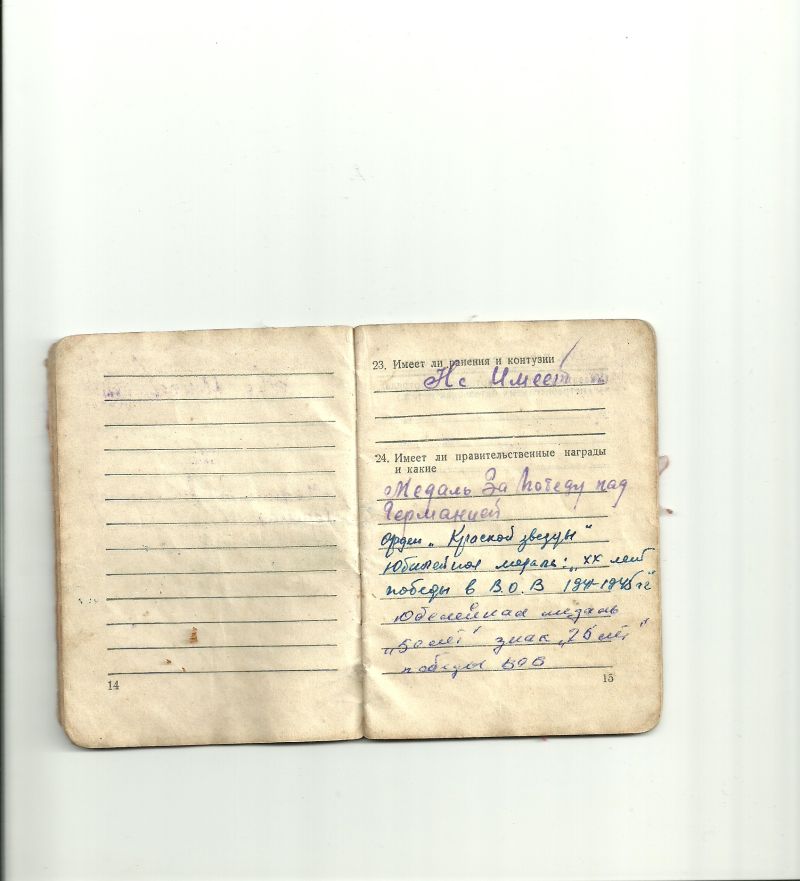 14
23. Имеет ли ранения и контузии
Не Имеет
24. Имеет ли правительственные награды
и какие
Медаль За Победу над
Германией
Орден „Красной звезды"
Юбилейная медаль: „XX лет
победы в В.О.В 1941-1945гг"
Юбелейная медаль
„50 лет" знак „25 лет"
победы ВОВ
15